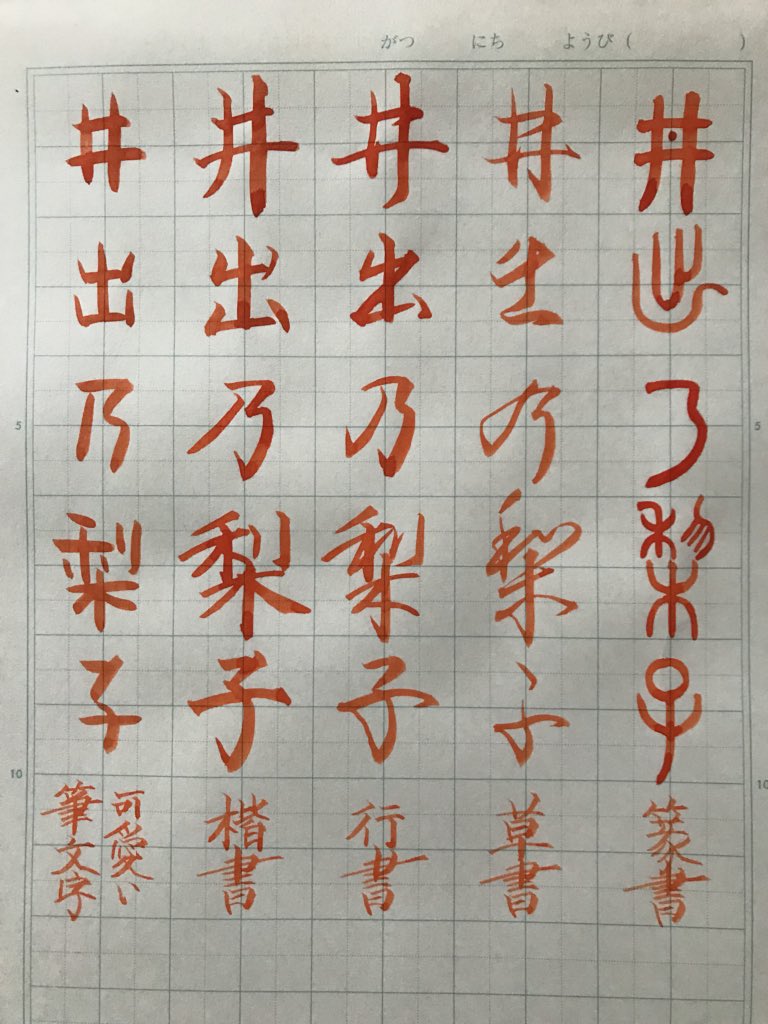 がつ にち ようび ( )
井出乃梨子 篆書
井出乃梨子 草書
井出乃梨子 行書
井出乃梨子 楷書
井出乃梨子 可愛い
筆文字
5
5
10
10